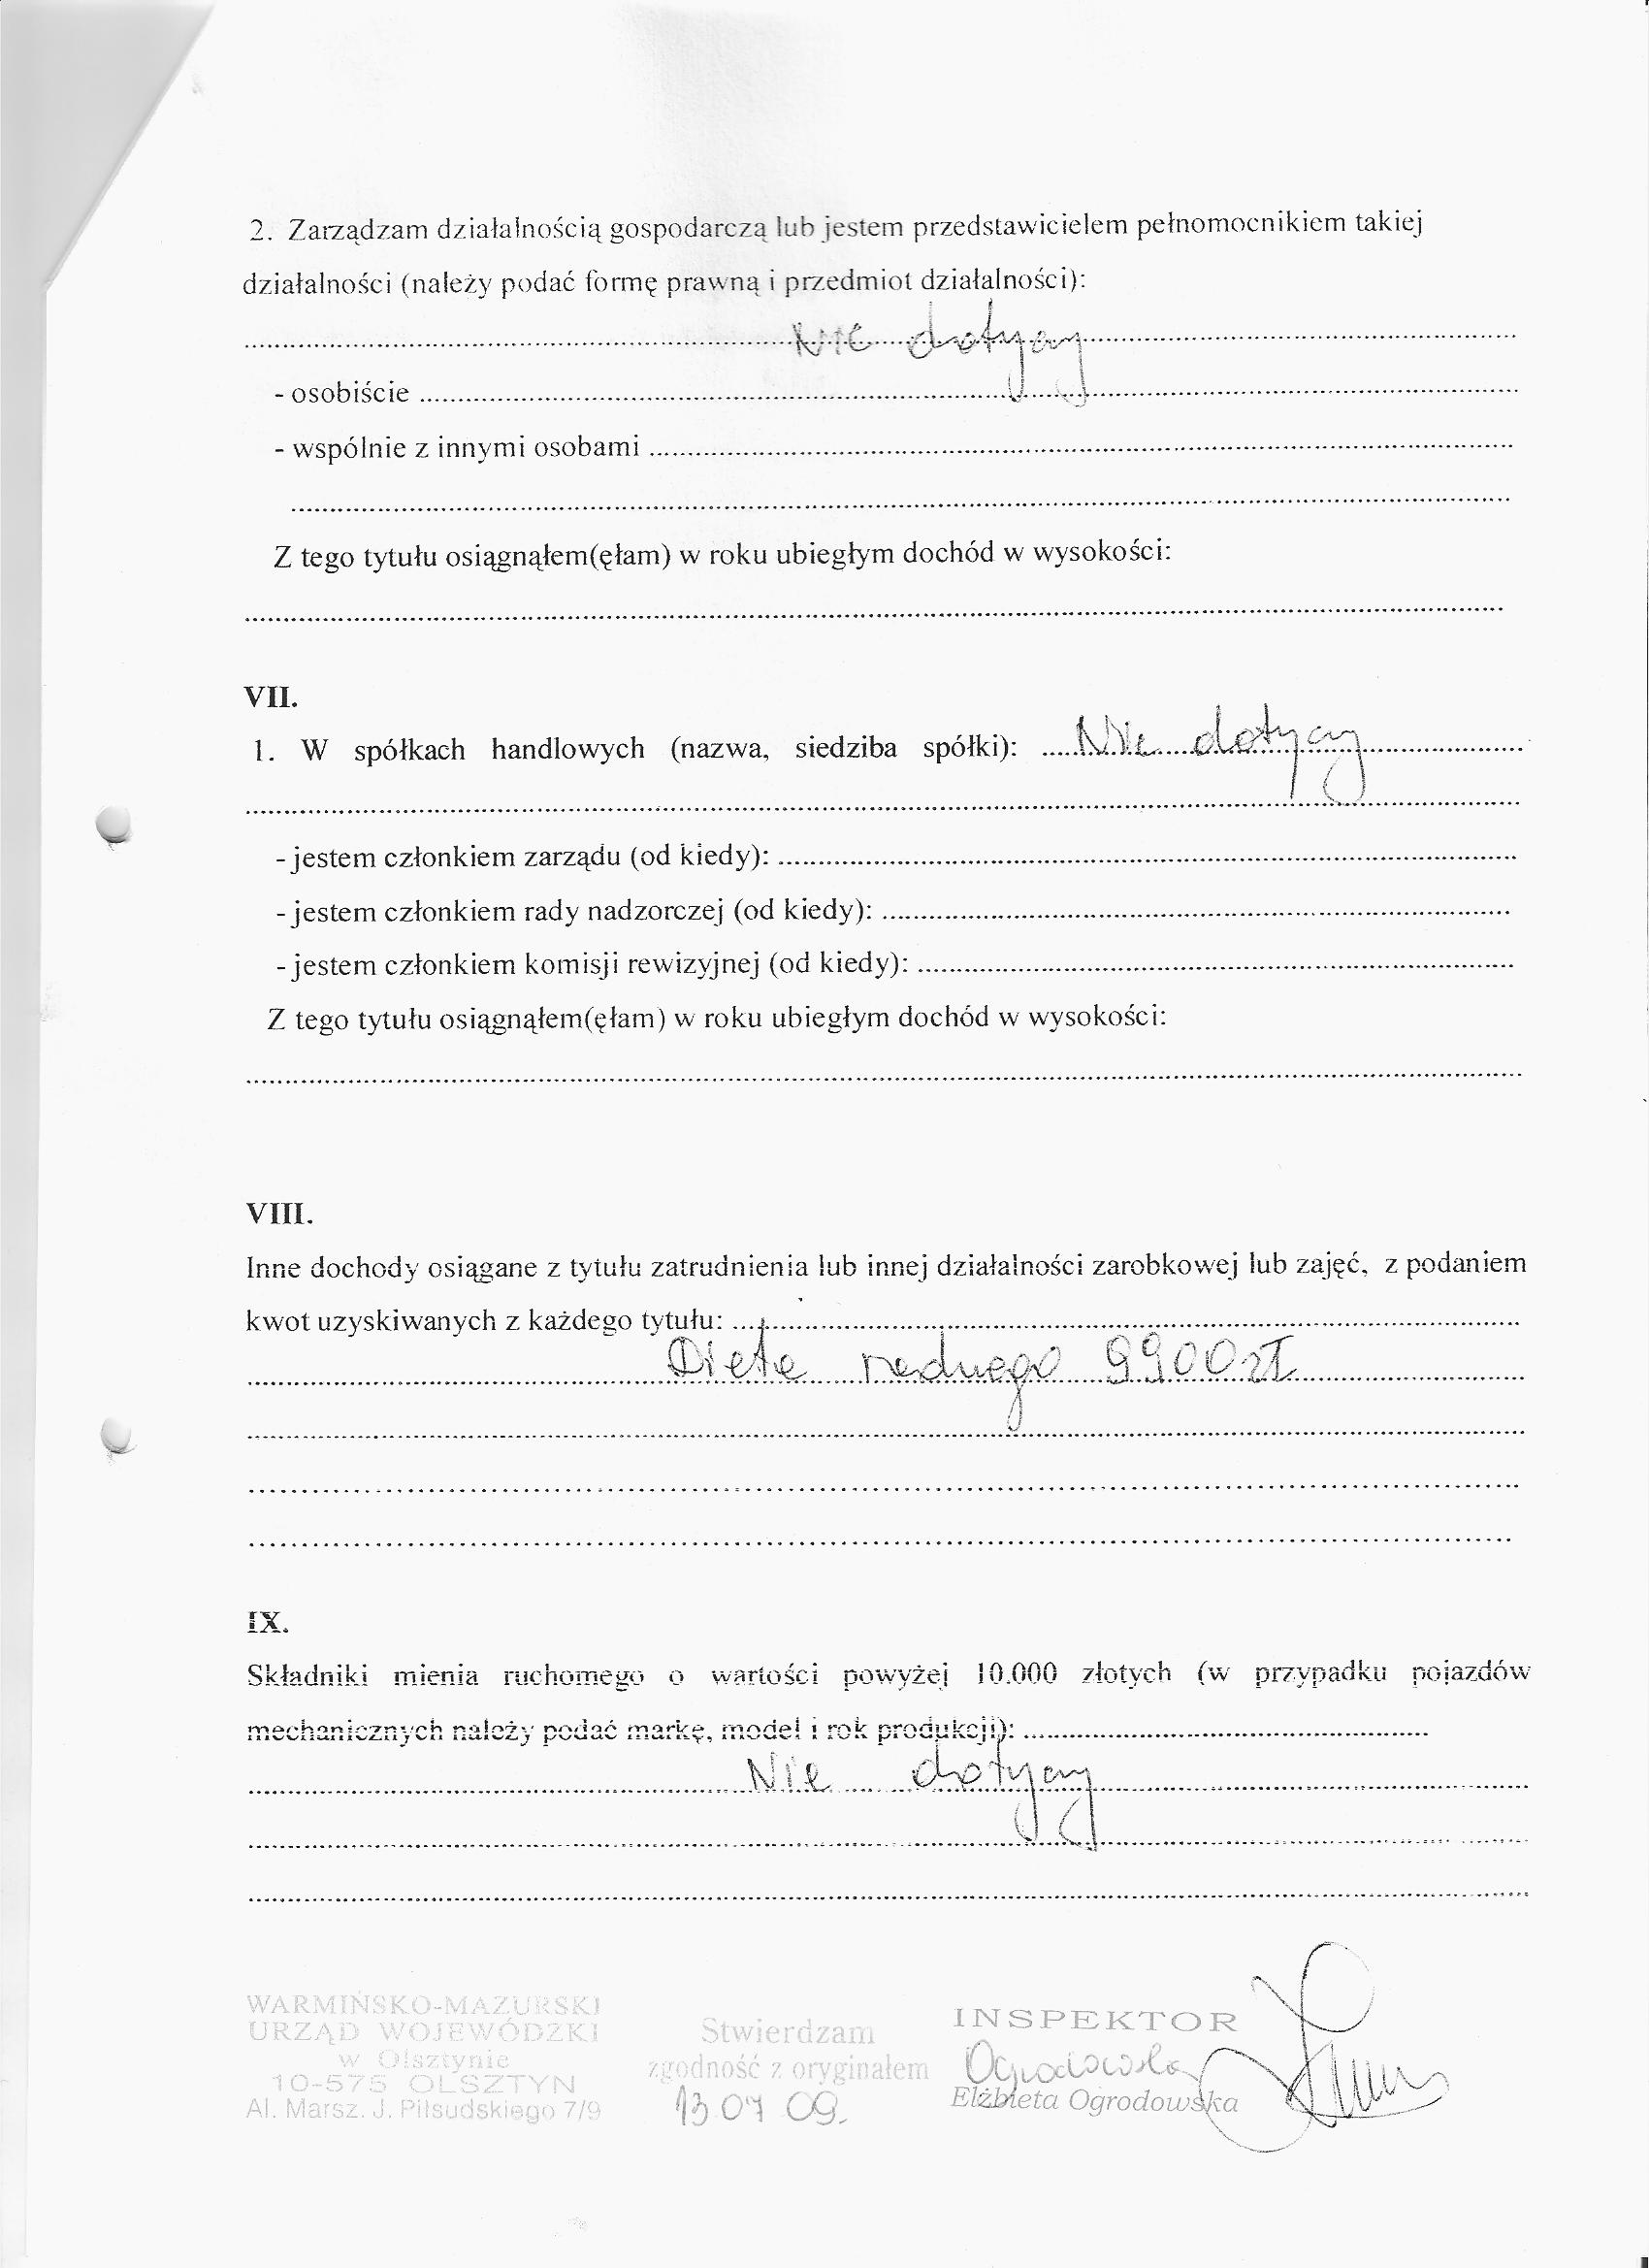 2. Zarządzam działalnością gospodarczą lub jestem przedstawicielem pełnomocnikiem takiej
działalności (należy podać formę prawną i przedmiot działalności):
Nie dotyczy
- osobiście
- wspólnie z innymi osobami
Z tego tytułu osiągnąłem(ęłam) w roku ubiegłym dochód w wysokości:
VII.
1. W spółkach handlowych (nazwa, siedziba spółki): Nie dotyczy
- jestem członkiem zarządu (od kiedy):
- jestem członkiem rady nadzorczej (od kiedy):
- jestem członkiem komisji rewizyjnej (od kiedy):
Z tego tytułu osiągnąłem(ęłam) w roku ubiegłym dochód w wysokości:
VIII.
Inne dochody osiągane z tytułu zatrudnienia lub innej działalności zarobkowej lub zajęć, z podaniem
kwot uzyskiwanych z każdego tytułu:
Dieta radnego 9900 zł
IX.
Składniki mienia ruchomego o wartości powyżej 10.000 złotych (w przypadku pojazdów
mechanicznych należy podać markę, model i rok produkcji):
Nie dotyczy
WARMIŃSKO-MAZURSKI
URZĄD WOJEWÓDZKI
w Olsztynie
10-575 OLSZTYN
Al. Marsz. J. Piłsudskiego 7/9
Stwierdzam
zgodność z oryginałem
13 07 09.
INSPEKTOR
Ogrodowska
Elżbieta Ogrodowska